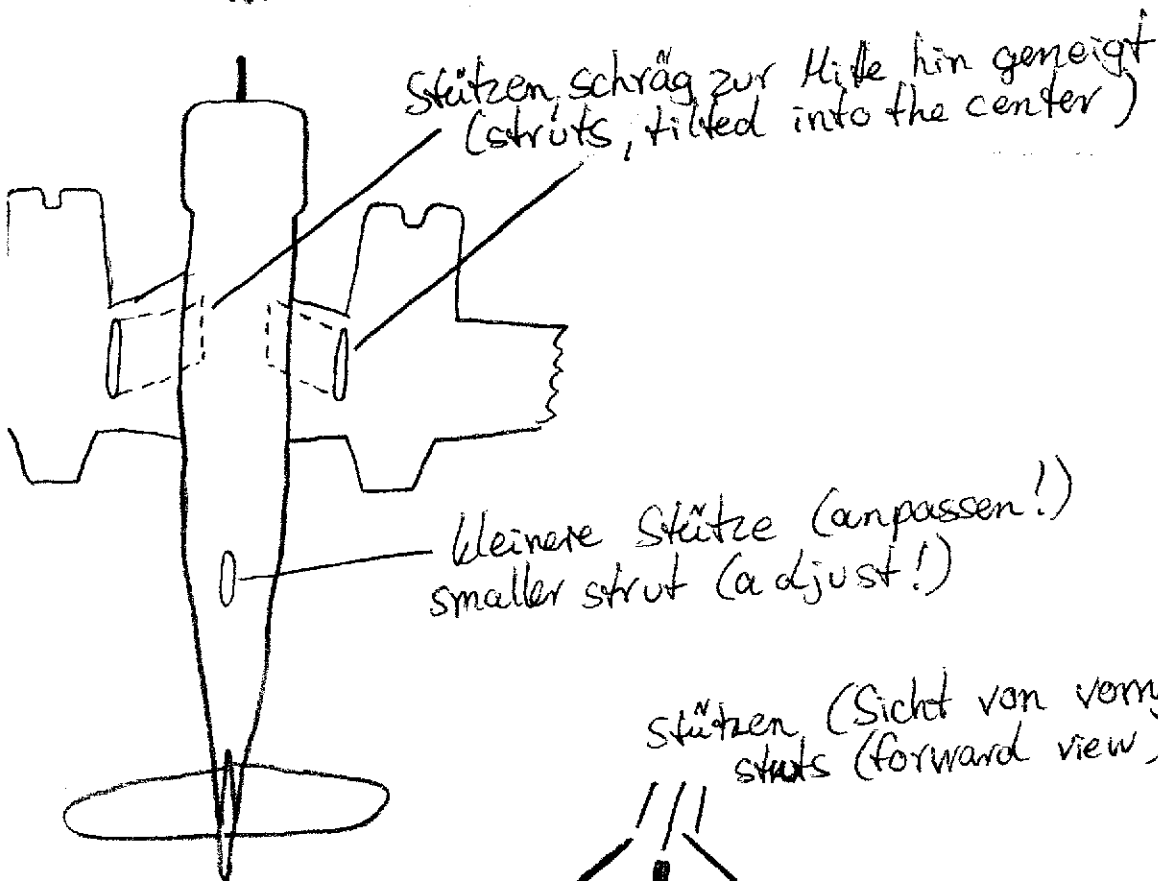 Stützen, schräg zur Mitte hin geneigt
(struts, tilted into the center)
kleinere Stütze (anpassen!)
smaller strut (adjust!)
Stützen (Sicht von vorn,
struts (forward view,